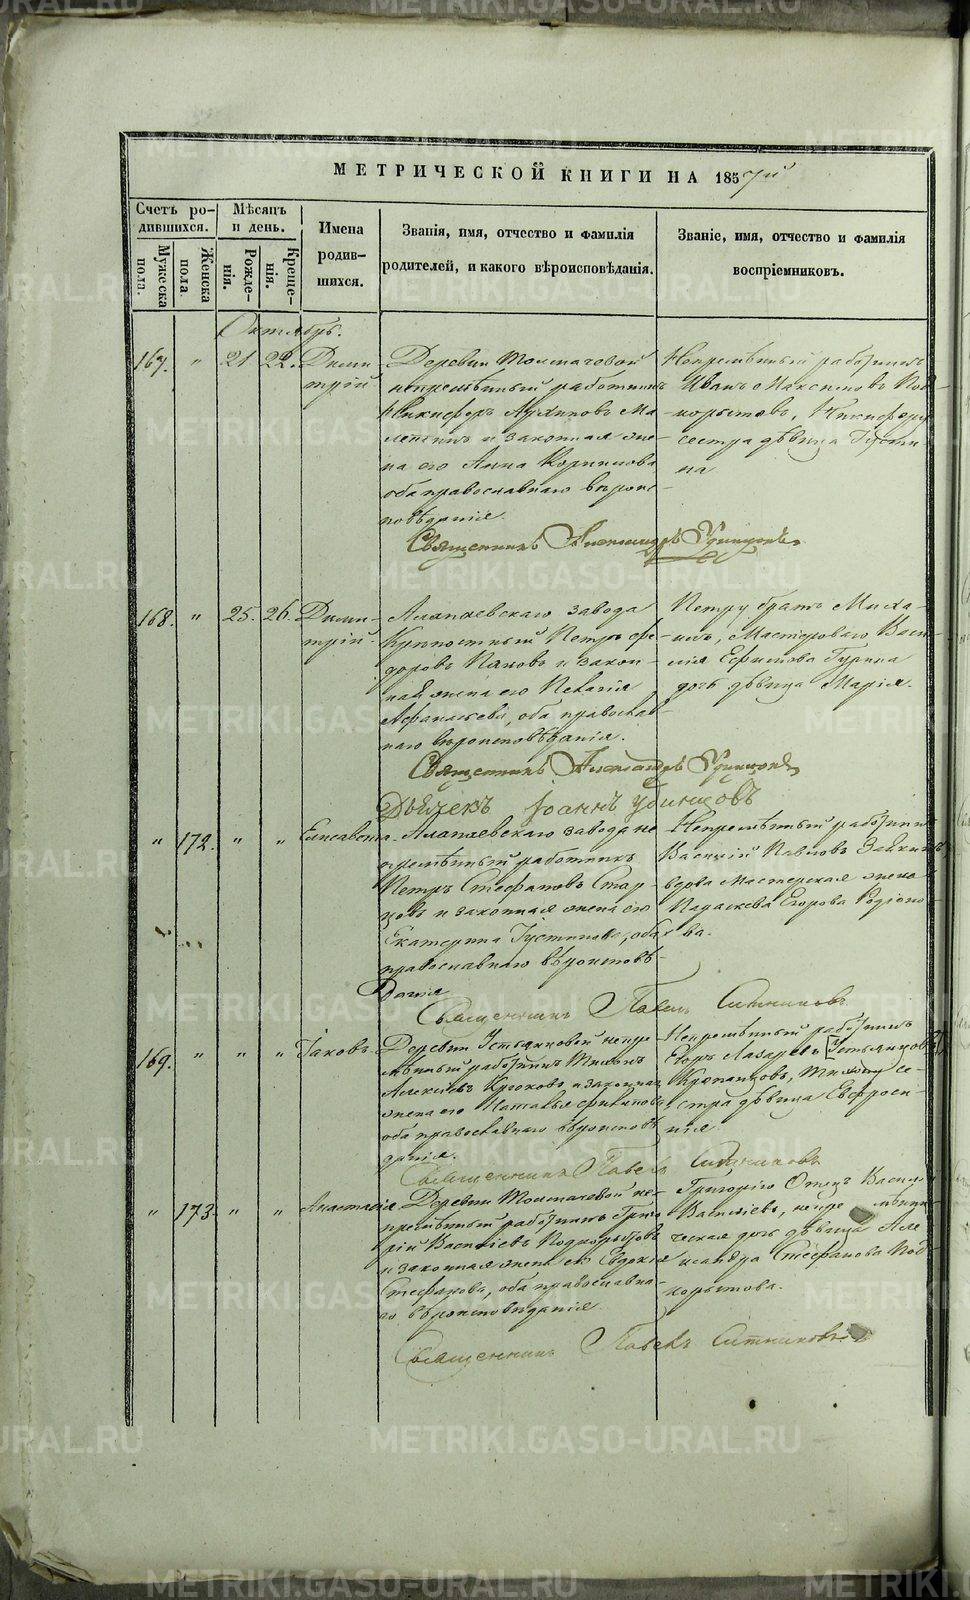 МЕТРИЧЕСКОЙ КНИГИ НА 1857й
Счетъ ро-
дившихся.
Мѣсяцъ
и день.
Имена
родив-
шихся.
Званія, имя, отчество и фамилія
родителей, и какого вѣроисповѣданія.
Званіе, имя, отчество и фамилія
воспріемниковъ.
Мужеска
пола.
Женска
пола
Рожде-
нія.
Креще-
нія.
Октябрь.
167. " 21 22. Дими-
трій
Деревни Толмачевой
непремѣнный работникъ
Никифоръ Архиповъ Ма-
и законная же-
на его Анна Корнилова
оба православнаго вѣроис-
повѣданія.
Непремѣнный работникъ
Иванъ Максимовъ Под-
корытовъ, Никифору
сестра дѣвица Густи-
на
Священникъ Александръ Удинцовъ
168. " 25. 26. Дими-
трій.
Алапаевскаго завода
Крѣпостный Петръ Фе-
доровъ и закон-
ная жена его Пелагія
Афанасьева, оба православ-
наго вѣроисповѣданія.
Петру братъ Миха-
илъ, Мастероваго Васи-
лія Ефимова Гурина
дочь дѣвица Марія.
Священникъ Александръ Удинцовъ
Дьячекъ Іоаннъ Удинцовъ
" 172. " " Елисавета
Алапаевскаго завода не-
премѣнный работникъ
Петръ Стефановъ Стар-
цовъ и законная жена его
Екатерина Густинова, оба
православнаго вѣроисповѣ-
данія
Непремѣнный работникъ
Василій Павловъ
Мастерская жена
Параскева Егорова Родіоно-
ва.
Священникъ Павелъ Ситниковъ
169. " " " Іаковъ
Деревни Устьянчовой непре-
мѣнный работникъ Тихонъ
Алексѣевъ и законная
жена его Наталья Филипова
оба православнаго вѣроисповѣ-
данія.
Непремѣнный работникъ
Егоръ Лазаревъ
Тихону се-
стра дѣвица Евфроси-
нія
Священникъ Павелъ Ситниковъ
" 173. " " Анастасія
Деревни Толмачевой не-
премѣнный работникъ Григо-
рій Василіевъ Подкорытовъ
и законная жена его Евдокія
Стефанова, оба православна-
го вѣроисповѣданія.
Григорію Отецъ Василій
Василіевъ, непремѣнни-
ческая дочь дѣвица Але-
ксандра Стефанова Под-
корытова.
Священникъ Павелъ Ситниковъ
METRIKI.GASO-URAL.RU